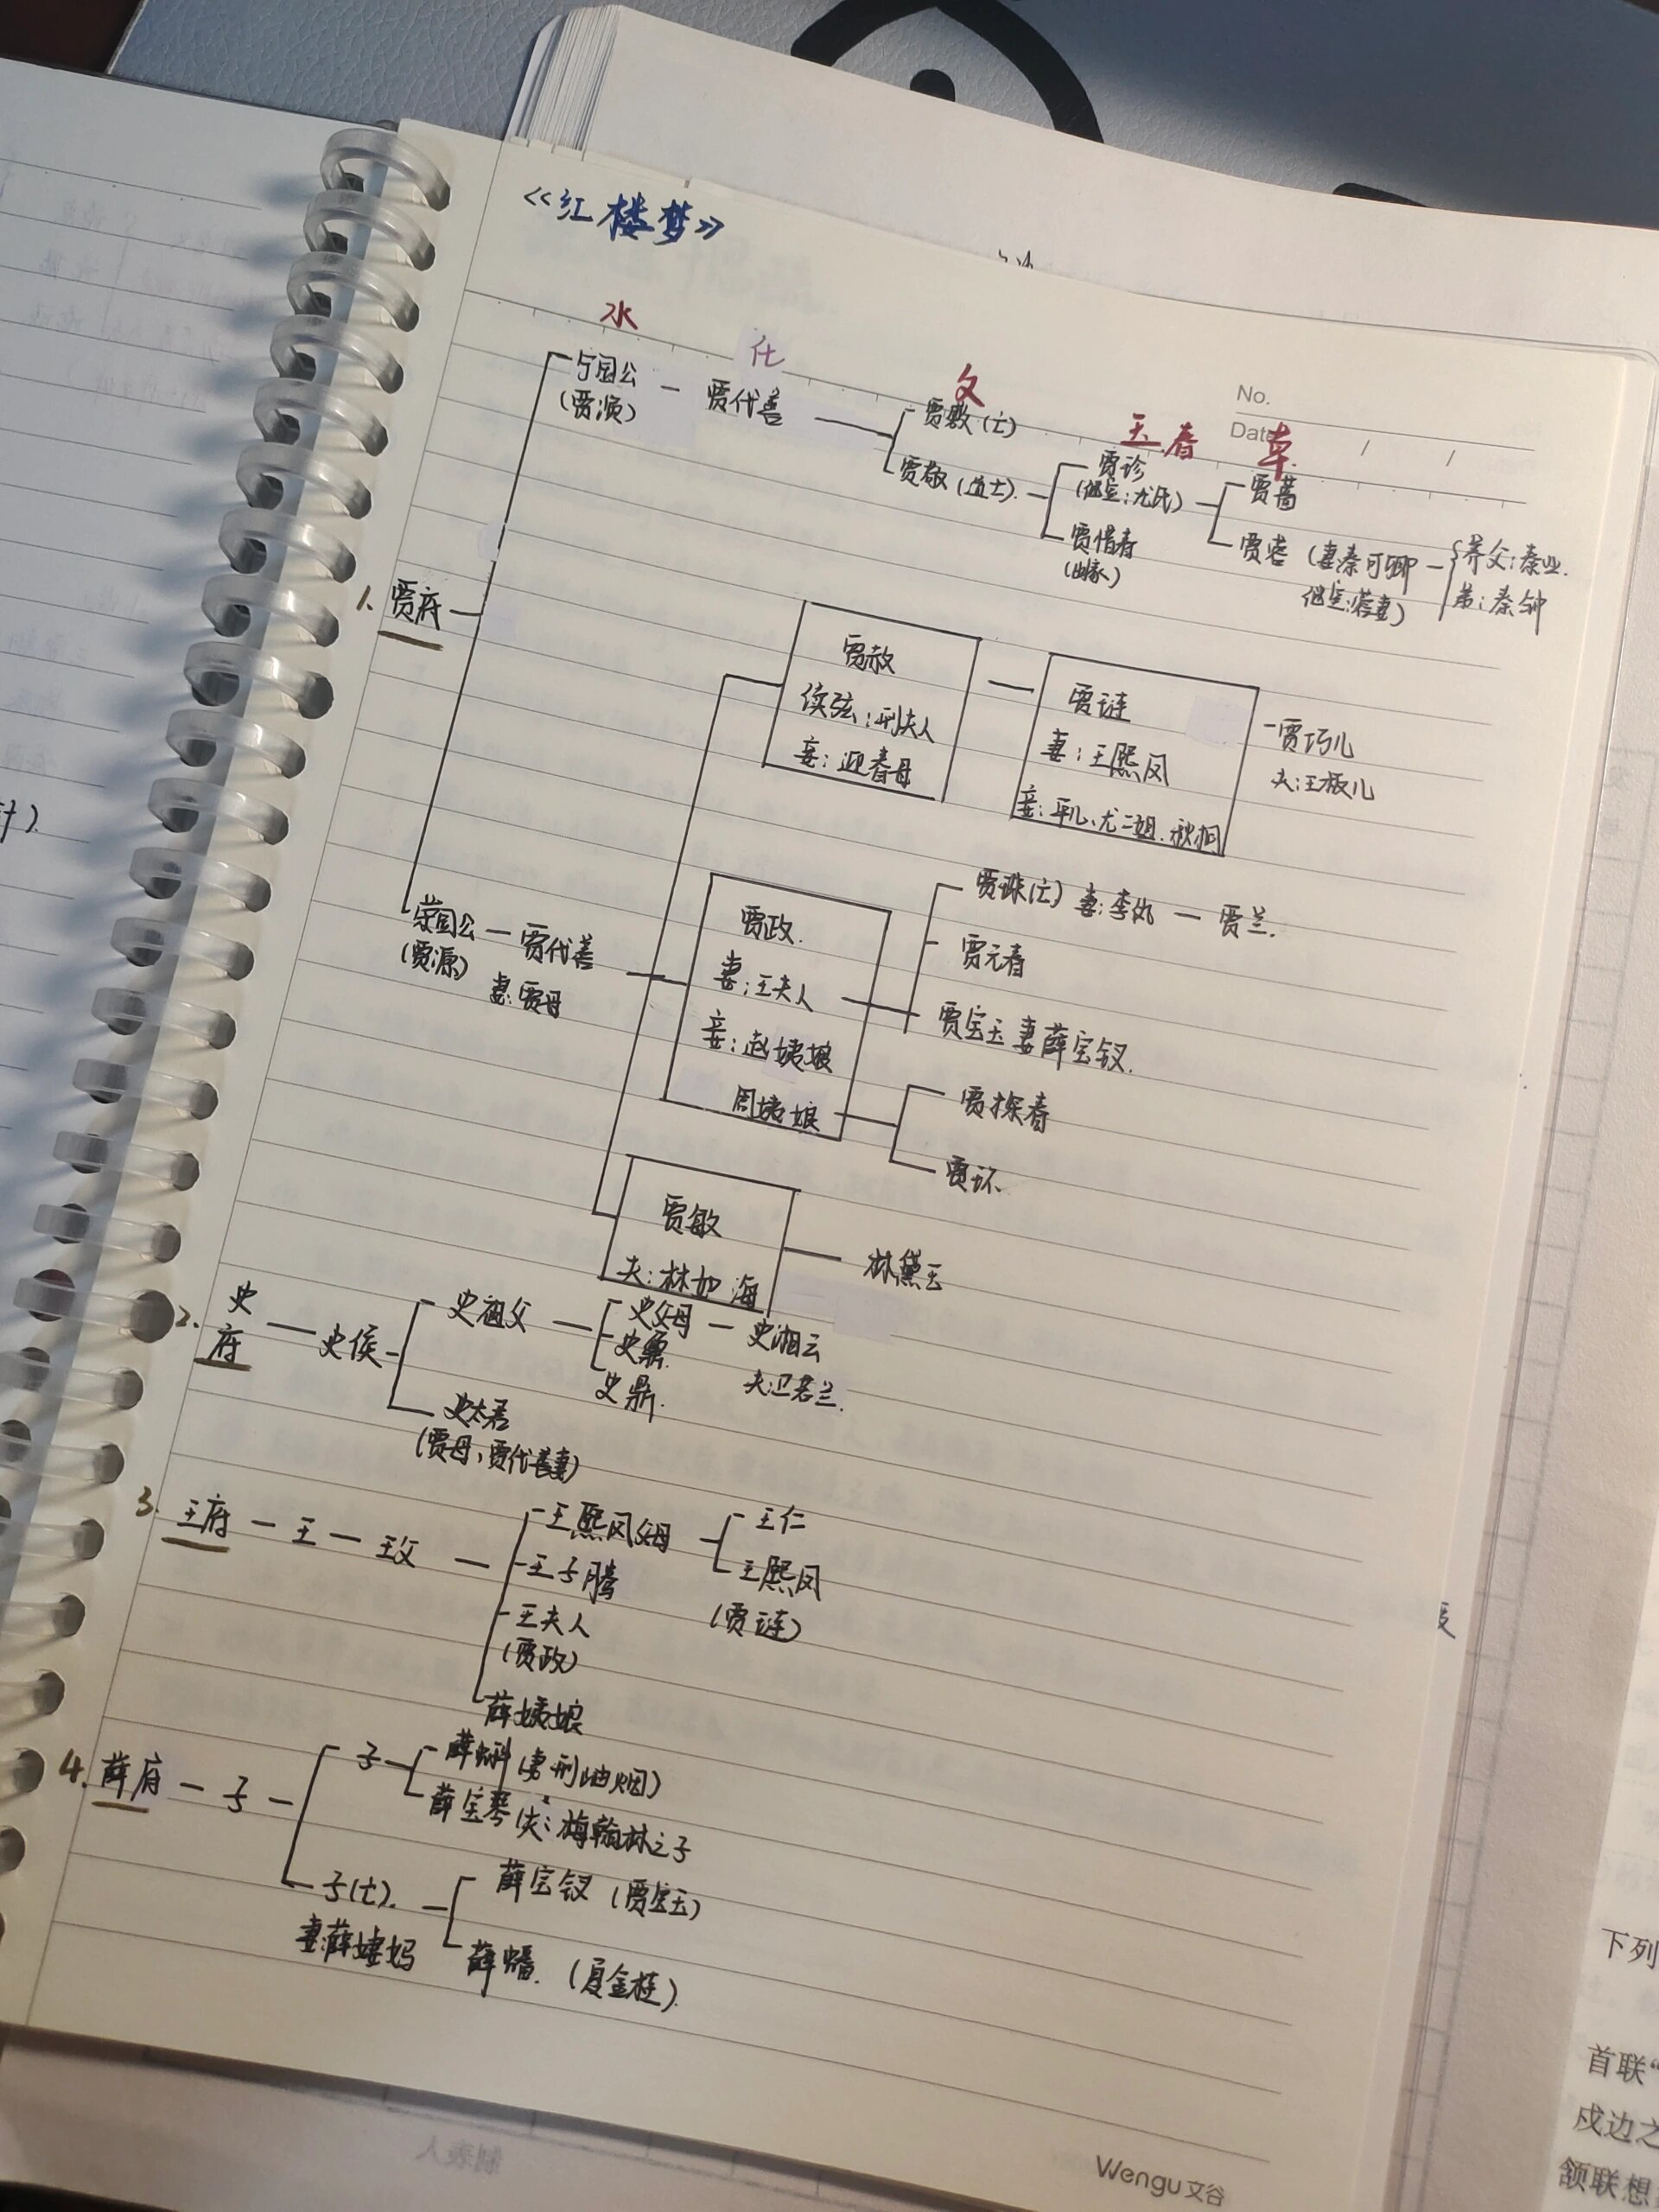 《红楼梦》
水
化
文
玉 春 草
No.
Date
宁国公 — 贾代善
(贾演)
贾敷(亡)
贾敬(道士)
贾珍
(继室:尤氏)
贾惜春
(出家)
贾蔷
贾蓉(妻秦可卿
继室:蓉妻)
养父:秦业.
弟:秦钟
1. 贾府
贾赦
续弦:刑夫人
妾:迎春母
贾琏
妻:王熙凤
妾:平儿、尤二姐、秋桐
贾巧儿
夫:王板儿
荣国公 — 贾代善
(贾源) 妻:贾母
贾政.
妻:王夫人
妾:赵姨娘
周姨娘
贾珠(亡) 妻:李纨 — 贾兰.
贾元春
贾宝玉 妻薛宝钗.
贾探春
贾环.
贾敏
夫:林如海
林黛玉
2. 史府 — 史侯
史祖父
史父母 — 史湘云
史鼐.
史鼎.
夫:卫若兰.
史太君
(贾母,贾代善妻)
3. 王府 — 王 — 王父
王熙凤父母
王子腾
王夫人
(贾政)
薛姨娘
王仁
王熙凤
(贾琏)
4. 薛府 — 子
子
薛蝌(妻刑岫烟)
薛宝琴(夫:梅翰林之子
子(亡).
妻:薛姨妈
薛宝钗(贾宝玉)
薛蟠.(夏金桂)
Wengu 文谷
下列
首联“
戍边之
颔联想